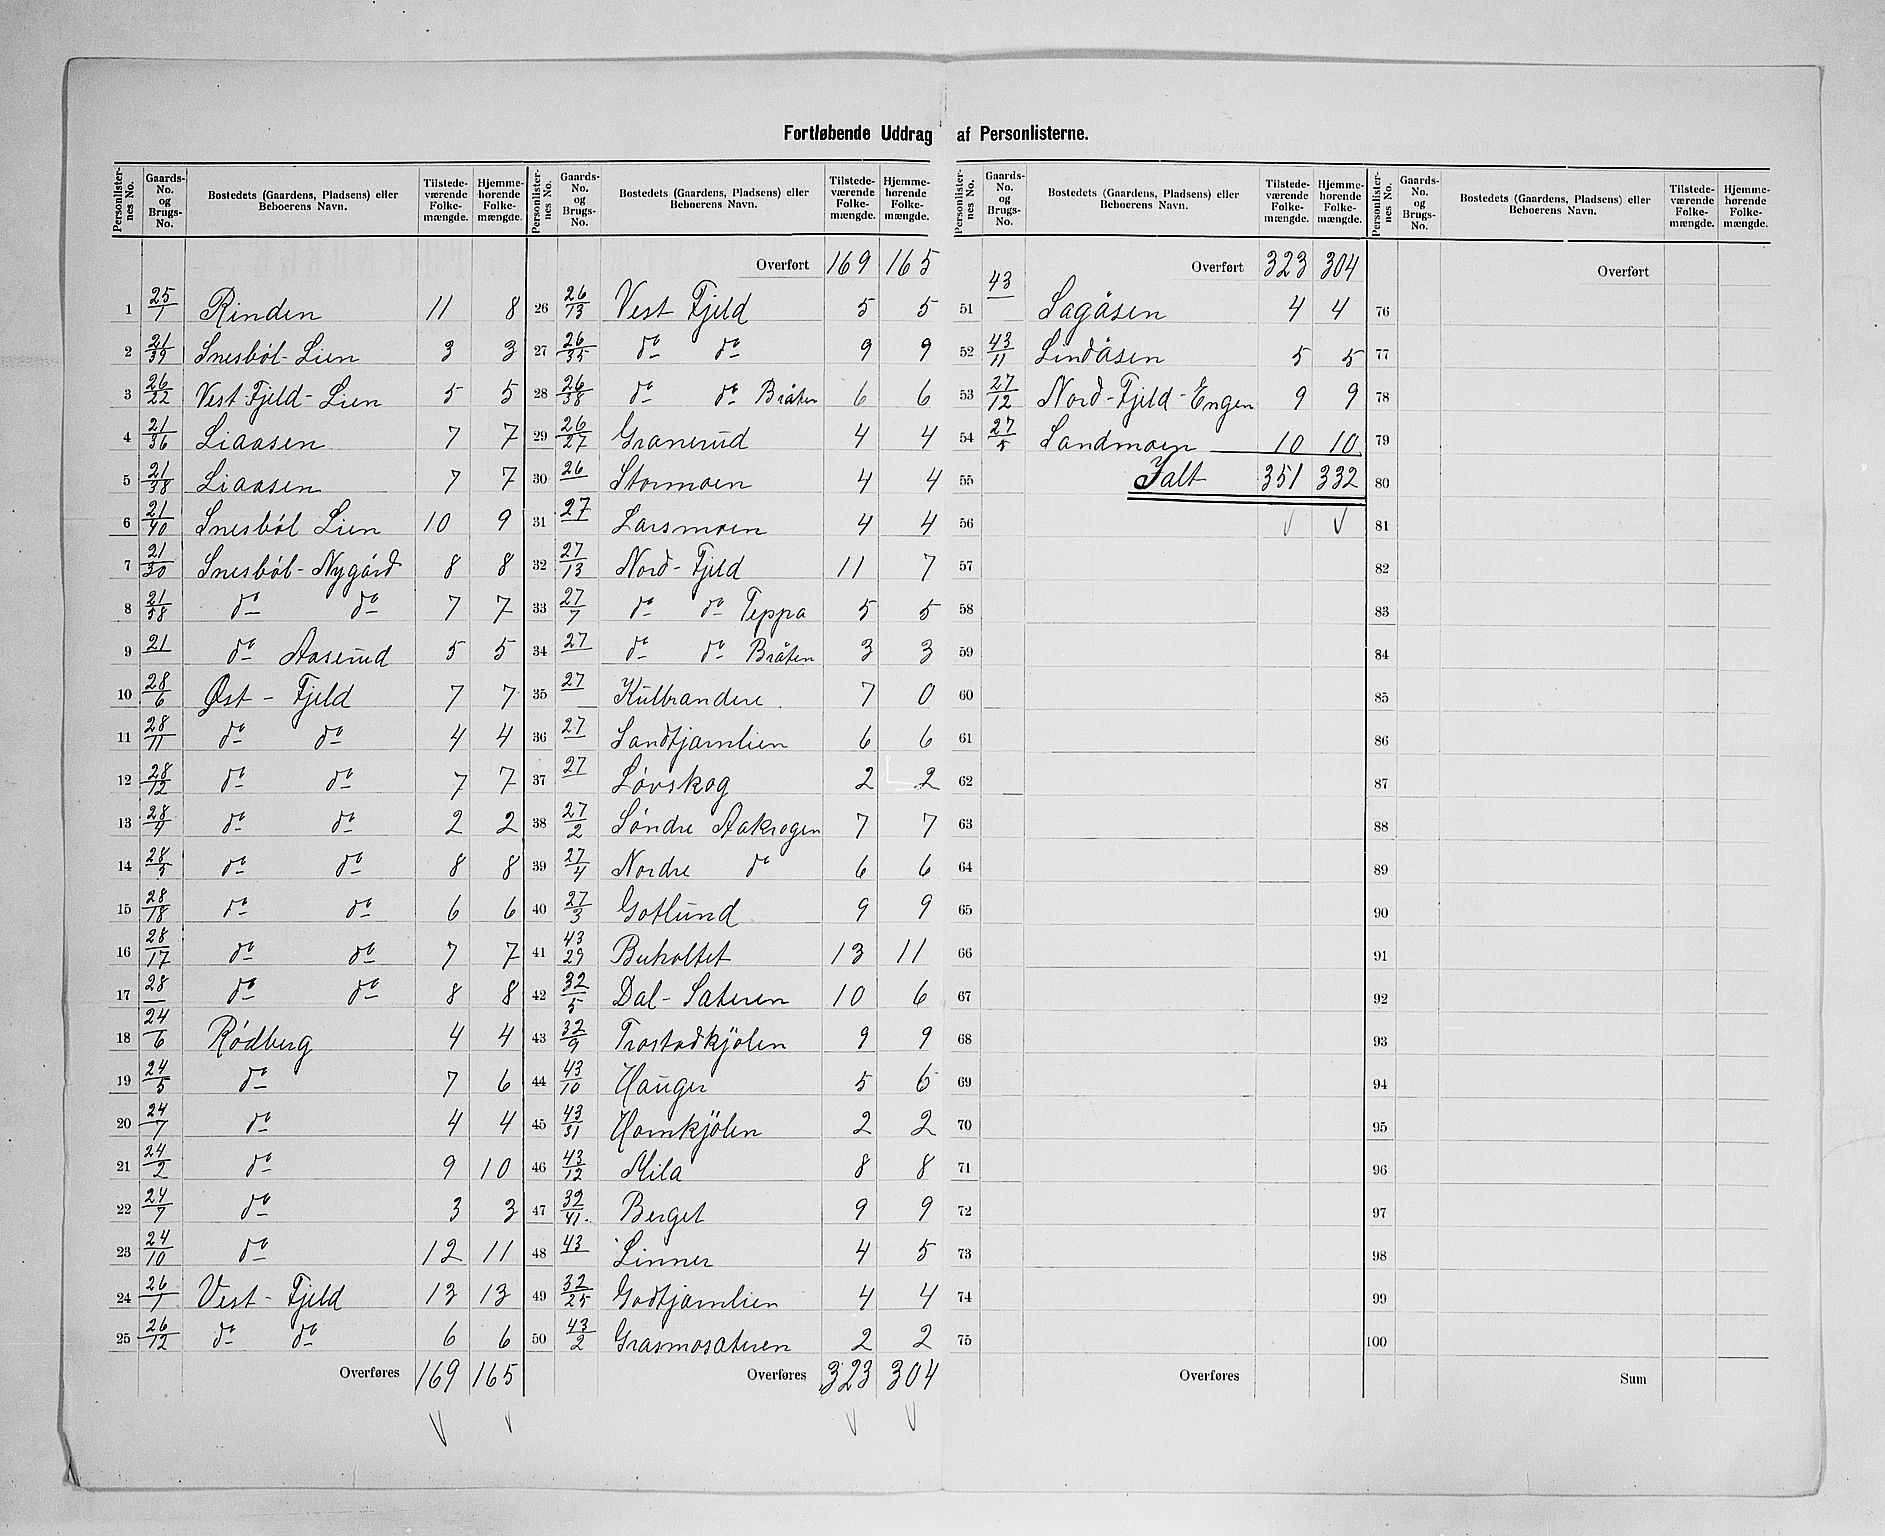 Fortløbende Uddrag af Personlisterne.
Personlister- nes No. | Gaards- No. og Brugs- No. | Bostedets (Gaardens, Pladsens) eller Beboerens Navn. | Tilstede- værende Folke- mængde. | Hjemme- hørende Folke- mængde.
1 25/1 Rinden 11 8
2 21/39 Snesböl-Lien 3 3
3 26/22 Vest Fjeld-Lien 5 5
4 21/36 Liaasen 7 7
5 21/38 Liaasen 7 7
6 21/40 Snesböl Lien 10 9
7 21/30 Snesböl-Nygård 8 8
8 21/58 do do 7 7
9 21 do Aaserud 5 5
10 28/6 Øst-Fjeld 7 7
11 28/11 do do 4 4
12 28/12 do do 7 7
13 28/4 do do 2 2
14 28/5 do do 8 8
15 28/18 do do 6 6
16 28/17 do do 7 7
17 28 do do 8 8
18 24/6 Rödberg 4 4
19 24/5 do 7 6
20 24/7 do 4 4
21 24/2 do 9 10
22 24/7 do 3 3
23 24/10 do 12 11
24 26/1 Vest-Fjeld 13 13
25 26/12 do do 6 6
Overføres 169 165
Personlister- nes No. | Gaards- No. og Brugs- No. | Bostedets (Gaardens, Pladsens) eller Beboerens Navn. | Tilstede- værende Folke- mængde. | Hjemme- hørende Folke- mængde.
Overført 169 165
26 26/13 Vest Fjeld 5 5
27 26/35 do do 9 9
28 26/38 do do Bråten 6 6
29 26/27 Granerud 4 4
30 26 Stormoen 4 4
31 27 Larsmoen 4 4
32 27/13 Nord-Fjeld 11 7
33 27/7 do do Teppa 5 5
34 27 do do Bråten 3 3
35 27 Kulbrandere 7 0
36 27 Sandtjarnlien 6 6
37 27 Lövskog 2 2
38 27/2 Söndre Aakrogen 7 7
39 27/4 Nordre do 6 6
40 27/3 Gotlund 9 9
41 43/29 Buholtet 13 11
42 32/5 Dal-Sateren 10 6
43 32/9 Trostadkjölen 9 9
44 43/10 Hauger 5 6
45 43/31 Hornkjölen 2 2
46 43/12 Mila 8 8
47 32/41. Berget 9 9
48 43 Linner 4 5
49 32/25 Godtjarnlien 4 4
50 43/2 Grasmosateren 2 2
Overføres 323 304
Personlister- nes No. | Gaards- No. og Brugs- No. | Bostedets (Gaardens, Pladsens) eller Beboerens Navn. | Tilstede- værende Folke- mængde. | Hjemme- hørende Folke- mængde.
Overført 323 304
51 43 Sagåsen 4 4
52 43/11 Lindåsen 5 5
53 27/12 Nord-Fjeld-Engen 9 9
54 27/5 Sandmoen 10 10
55 Ialt 351 332
56
57
58
59
60
61
62
63
64
65
66
67
68
69
70
71
72
73
74
75
Overføres
Personlister- nes No. | Gaards- No. og Brugs- No. | Bostedets (Gaardens, Pladsens) eller Beboerens Navn. | Tilstede- værende Folke- mængde. | Hjemme- hørende Folke- mængde.
Overført
76
77
78
79
80
81
82
83
84
85
86
87
88
89
90
91
92
93
94
95
96
97
98
99
100
Sum